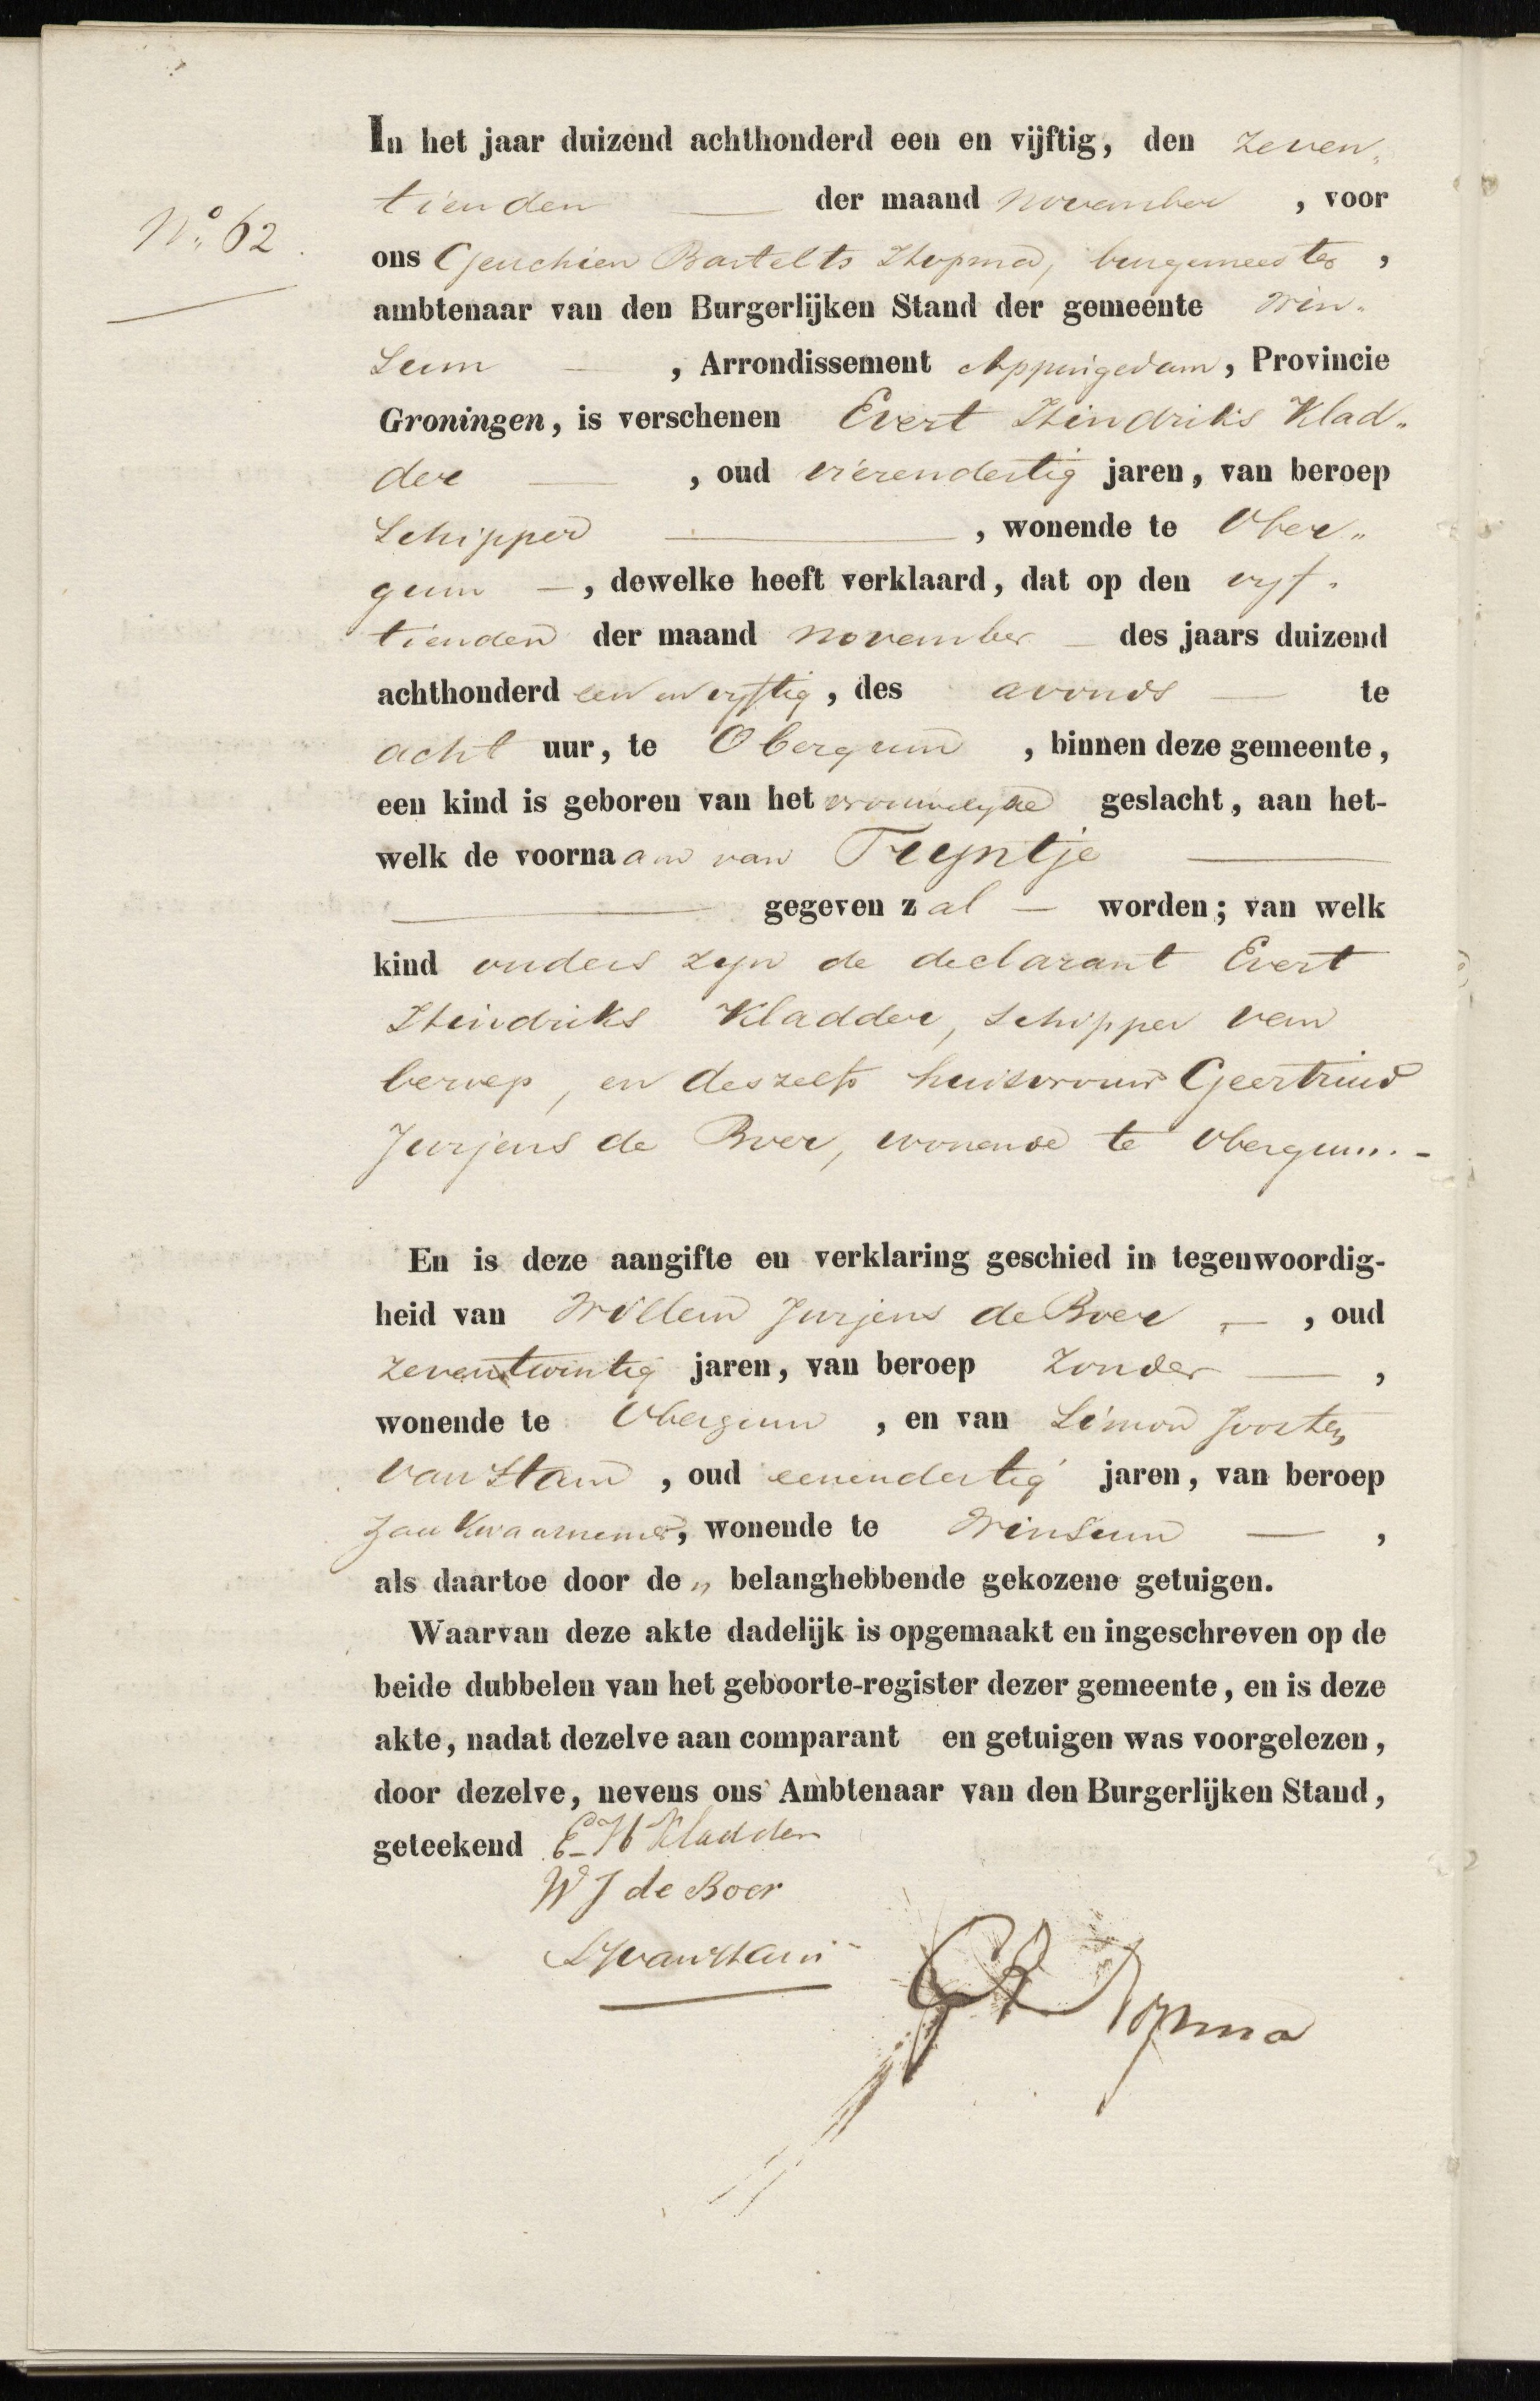 In het jaar duizend achthonderd een en vijftig, den zeven„
tienden — der maand november , voor
No. 62
ons Geuchien Bartelts Thopma, burgemeester ,
ambtenaar van den Burgerlijken Stand der gemeente Win-
sum — , Arrondissement Appingedam, Provincie
Groningen, is verschenen Evert Hindriks Klad„
der — , oud vierendertig jaren, van beroep
Schipper — , wonende te Ober„
gum —, dewelke heeft verklaard, dat op den vyf-
tienden der maand november — des jaars duizend
achthonderd een en vyftig, des avonds — te
acht uur, te Obergum , binnen deze gemeente,
een kind is geboren van het vrouwelyke geslacht, aan het-
welk de voornaam van Tryntje —
— gegeven zal — worden; van welk
kind ouders zyn de declarant Evert
Hindriks Kladder, Schipper van
beroep, en deszelfs huisvrouw Geertruid
Jurjens de Boer, wonende te Obergum.-
En is deze aangifte en verklaring geschied in tegenwoordig-
heid van Willem Jurjens de Boer — , oud
zeventwintig jaren, van beroep Zonder — ,
wonende te Obergum , en van Simon Joosten
van Ham , oud eenendertig jaren, van beroep
Zaakwaarnemer, wonende te Winsum — ,
als daartoe door de „ belanghebbende gekozene getuigen.
Waarvan deze akte dadelijk is opgemaakt en ingeschreven op de
beide dubbelen van het geboorte-register dezer gemeente, en is deze
akte, nadat dezelve aan comparant en getuigen was voorgelezen,
door dezelve, nevens ons Ambtenaar van den Burgerlijken Stand,
geteekend E H Kladder
W J de Boer
S J van Ham